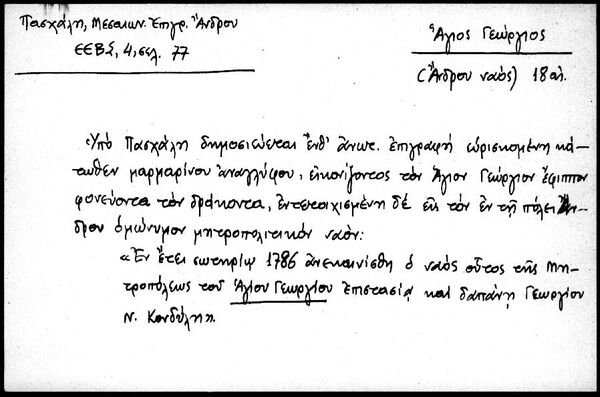 Πασχάλη, Μεσαιων. Ἐπιγρ. Ἄνδρου
ΕΕΒΣ, 4, σελ. 77
Ἅγιος Γεώργιος
(Ἄνδρου ναὸς) 18 αἰ.
Ὑπὸ Πασχάλη δημοσιεύεται ἔνθ' ἀνωτ. ἐπιγραφὴ εὑρισκομένη κά-
τωθεν μαρμαρίνου ἀναγλύφου, εἰκονίζοντος τὸν Ἅγιον Γεώργιον ἔφιππον
φονεύοντα τὸν δράκοντα, ἐντετειχισμένη δὲ εἰς τὸν ἐν τῇ πόλει Ἄν-
δρου ὁμώνυμον μητροπολιτικὸν ναόν:
«Ἐν ἔτει σωτηρίῳ 1786 ἀνεκαινίσθη ὁ ναὸς οὗτος τῆς Μη-
τροπόλεως τοῦ Ἁγίου Γεωργίου ἐπιστασίᾳ καὶ δαπάνῃ Γεωργίου
Ν. Κονδύλη».